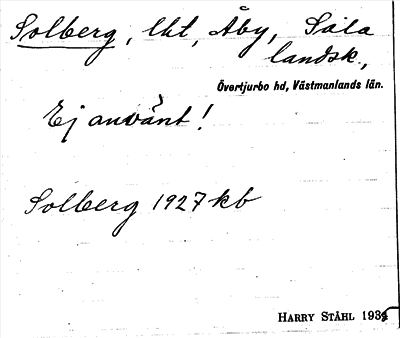 Solberg, lht, Åby, Sala
landsk.,
Övertjurbo hd, Västmanlands län.
Ej använt!
Solberg 1927 kb
HARRY STÅHL 1934